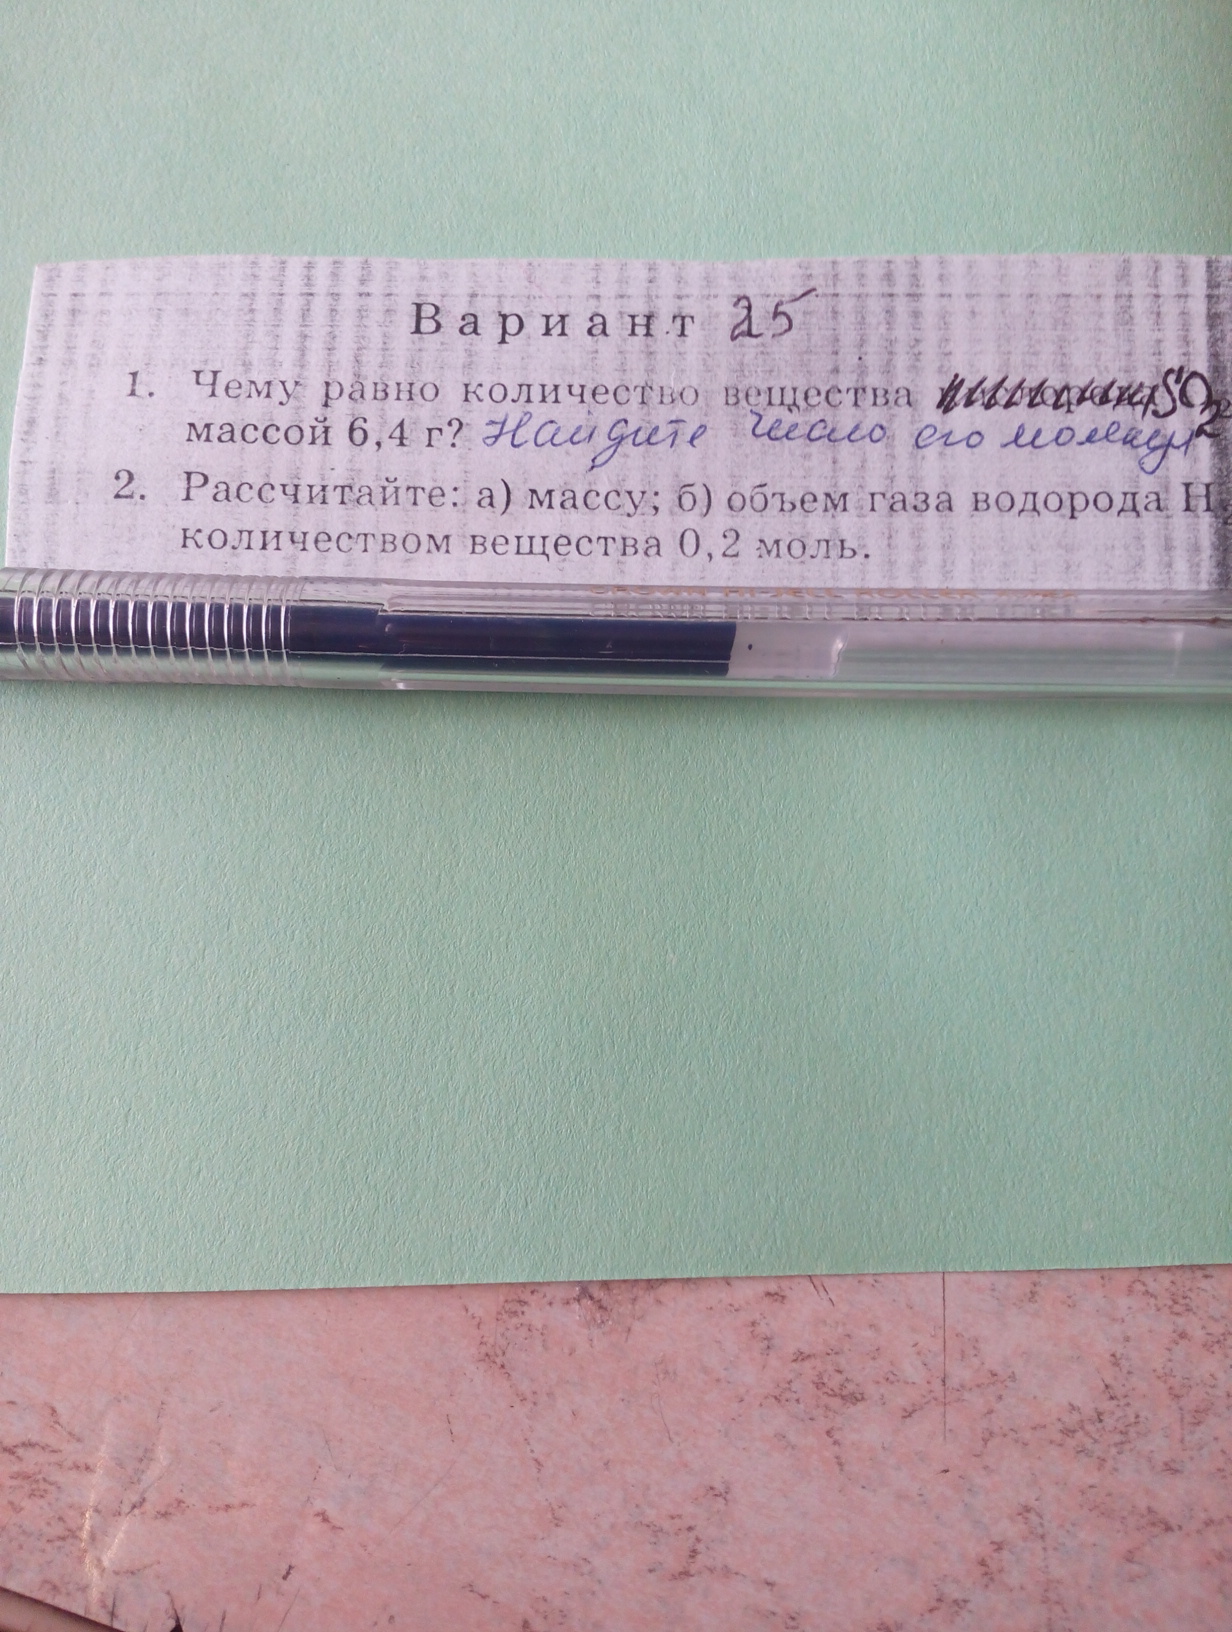 Вариант 25
1. Чему равно количество вещества SO2
массой 6,4 г? Найдите число его молекул
2. Рассчитайте: а) массу; б) объем газа водорода H
количеством вещества 0,2 моль.